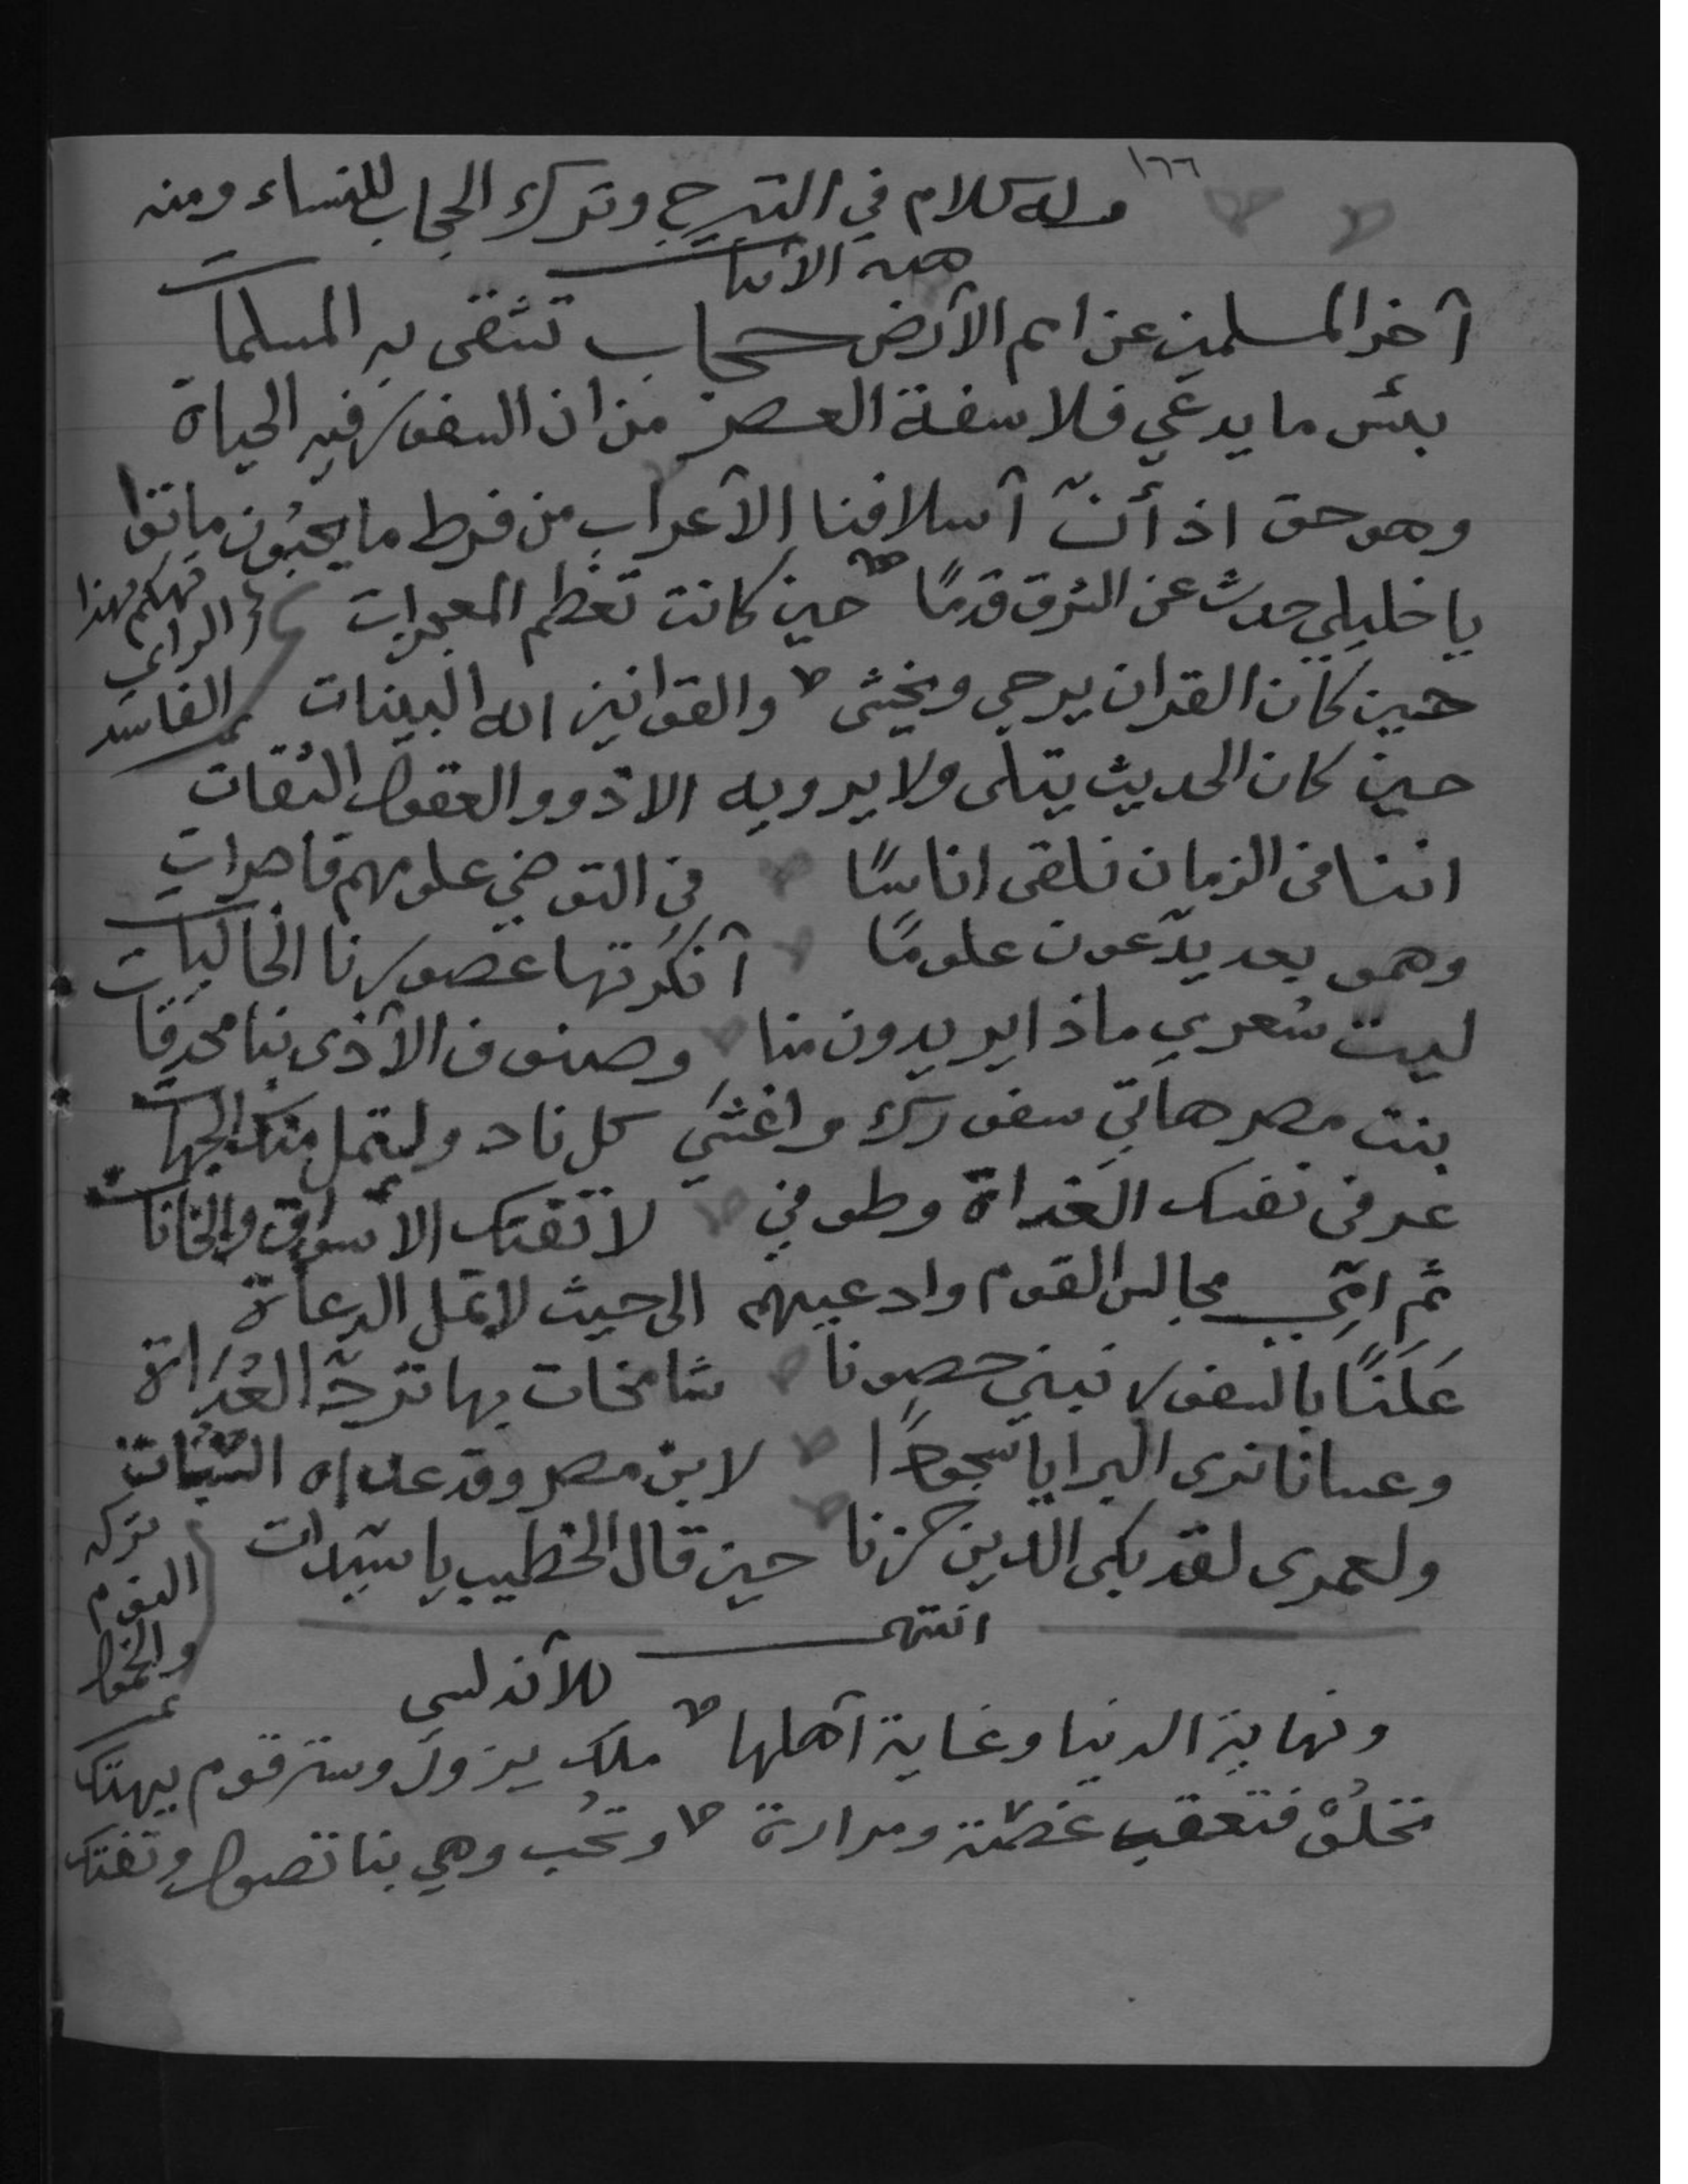 ١٦٦
وله كلام في التبرج وترك الحجاب للنساء ومنه
هذه الأبيات
آخر المسلمين عن امم الأرض حجاب تشقى به المسلمات
بئس ما يدعي فلاسفة العصر من ان السفور فيه الحياة
وهو حق اذ أنّ آسلافنا الأعراب من فرط ما يحبّون ماتوا
يا خليلي حدث عن الشرق قدمًا حين كانت تعظم المعجزات
تهكم بهذا
الرأي
الفاسد
حين كان القران يرجى ويخشى والقوانين اله البينات
حين كان الحديث يتلى ولا يرويه الا ذوو العقول الثقات
اننا في الزمان نلقى اناسًا في التوضي علومهم قاصرات
وهمو بعد يدّعون علومًا آنكرتها عصورنا الخاليات
ليت شعري ماذا يريدون منا وصنوف الآذى بنا محدقات
بنت مصر هاتي سفورك واغشي كل ناد ولتمل منك الجهات
عرفي نفسك الغداة وطوفي لا تفتك الأسواق والخانات
ثم امّي مجالس القوم وادعيهم الى حيث لا تمل الدعاة
عَلَنًا بالسفور نبني حصونا شامخات بها تردّ العُدَاة
وعسانا نرى البرايا سجودًا لابن مصر وقد عداه السُّبَات
ولعمرى لقد بكى الدين حزنا حين قال الخطيب يا سيّدات
تركه
النوم
والخمول
انتهى
للآندلسي
ونهاية الدنيا وغاية آهلها ملك يزول وستر قوم يهتك
تحلُوْ فتعقب غصّة ومرارة وتُحب وهي بنا تصول وتفتك